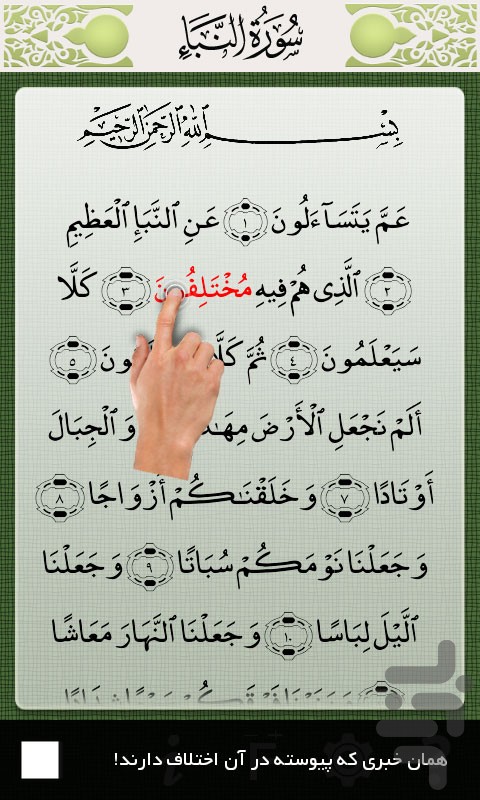 سُورَةُ النَّبَإِ
بِسْمِ ٱللَّهِ ٱلرَّحْمَٰنِ ٱلرَّحِيمِ
عَمَّ يَتَسَآءَلُونَ ١ عَنِ ٱلنَّبَإِ ٱلْعَظِيمِ
٢ ٱلَّذِى هُمْ فِيهِ مُخْتَلِفُونَ ٣ كَلَّا
سَيَعْلَمُونَ ٤ ثُمَّ كَلَّا ٥
أَلَمْ نَجْعَلِ ٱلْأَرْضَ وَٱلْجِبَالَ
أَوْتَادًا ٧ وَخَلَقْنَٰكُمْ أَزْوَاجًا ٨
وَجَعَلْنَا نَوْمَكُمْ سُبَاتًا ٩ وَجَعَلْنَا
ٱلَّيْلَ لِبَاسًا ١٠ وَجَعَلْنَا ٱلنَّهَارَ مَعَاشًا
همان خبری که پیوسته در آن اختلاف دارند!